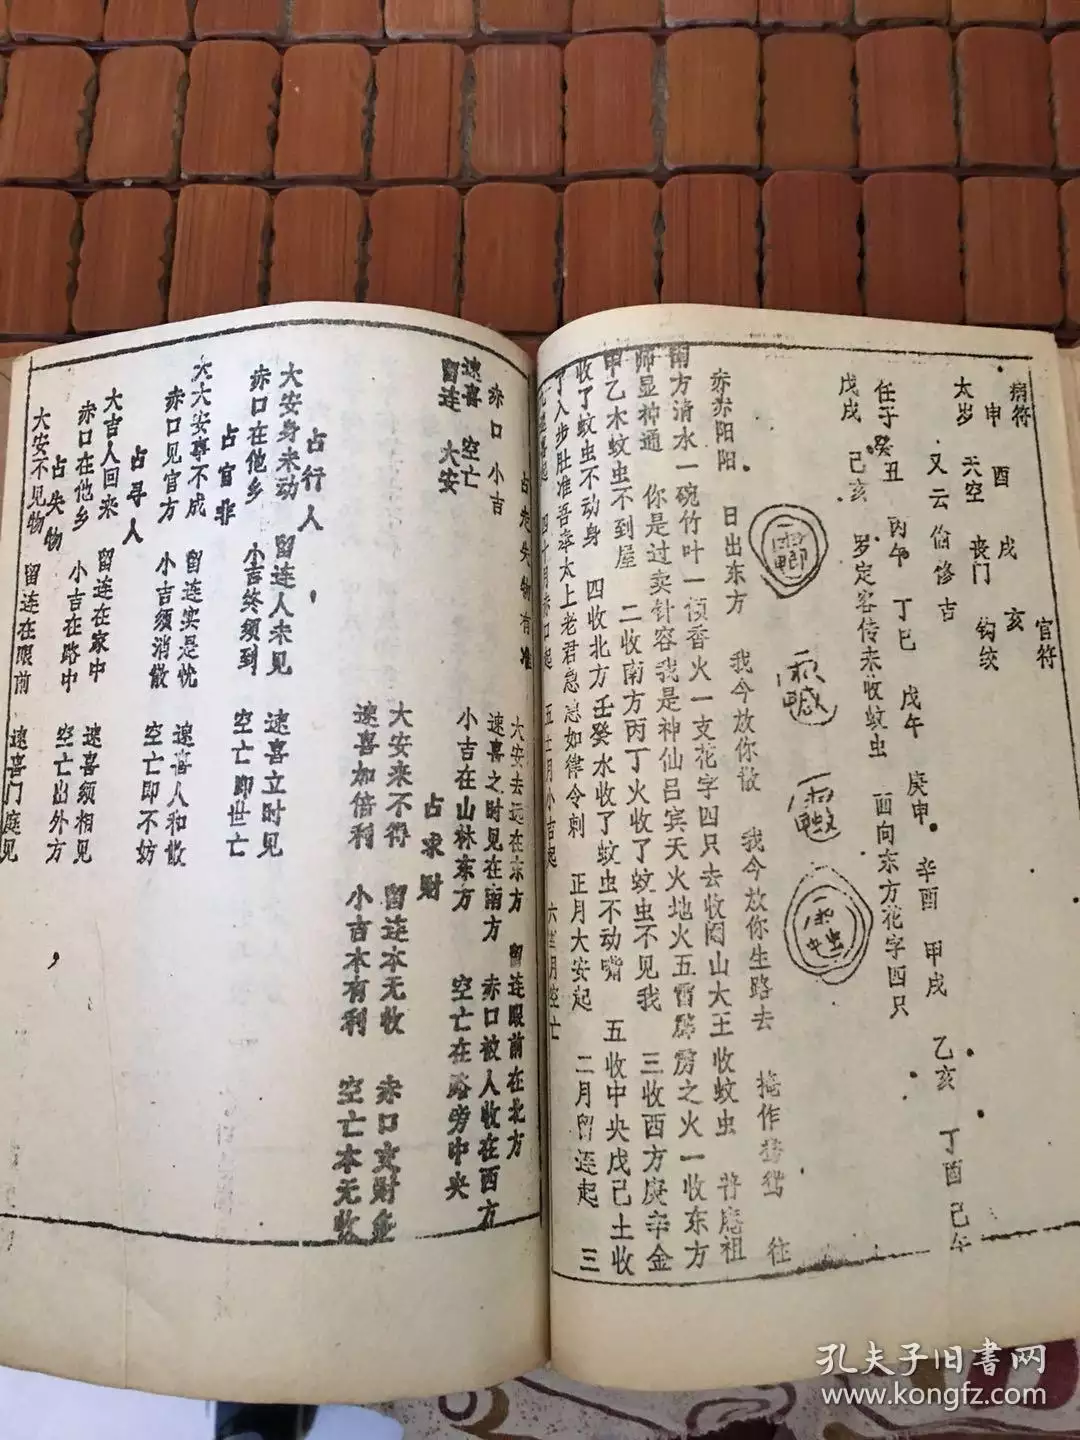 病符
申 酉 戌 亥 官符
太岁 天空 丧门 钩绞
又云偷修吉
任子 癸丑 丙午 丁巳 戊午 庚申 辛酉 甲戌 乙亥 丁酉 己午
戊戌 己亥 罗定容传来收蚊虫 面向东方花字四只
赤赤阳阳 日出东方 我今放你散 我今放你生路去 往
南方清水一碗竹叶一 香火一支花字四只去收闷山大王收蚊虫 祖
师显神通 你是过卖针容我是神仙吕宾天火地火五雷霹雳之火一收东方
甲乙木蚊虫不到屋 二收南方丙丁火收了蚊虫不见我 三收西方庚辛金
收了蚊虫不动身 四收北方壬癸水收了蚊虫不动嘴 五收中央戊己土收
了人步肚准吾奉太上老君急急如律令刺 正月大安起 二月留连起 三
四十月赤口起 五十一月小吉起 六十二月空亡
占走失物有准
赤口 小吉
速喜 空亡
留连 大安
大安去远在东方 留连眼前在北方
速喜之时见在南方 赤口被人收在西方
小吉在山林东方 空亡在路旁中央
占求财
大安来不得 留连本无收 赤口文财
速喜加倍利 小吉本有利 空亡本无收
占行人
大安身未动 留连人未见 速喜立时见
赤口在他乡 小吉终须到 空亡即世亡
占官非
大大安事不成 留连实是忧 速喜人和散
赤口见官方 小吉须消散 空亡即不妨
占寻人
大吉人回来 留连在家中 速喜须相见
赤口在他乡 小吉在路中 空亡出外方
占失物
大安不见物 留连在眼前 速喜门庭见
孔夫子旧書网
www.kongfz.com